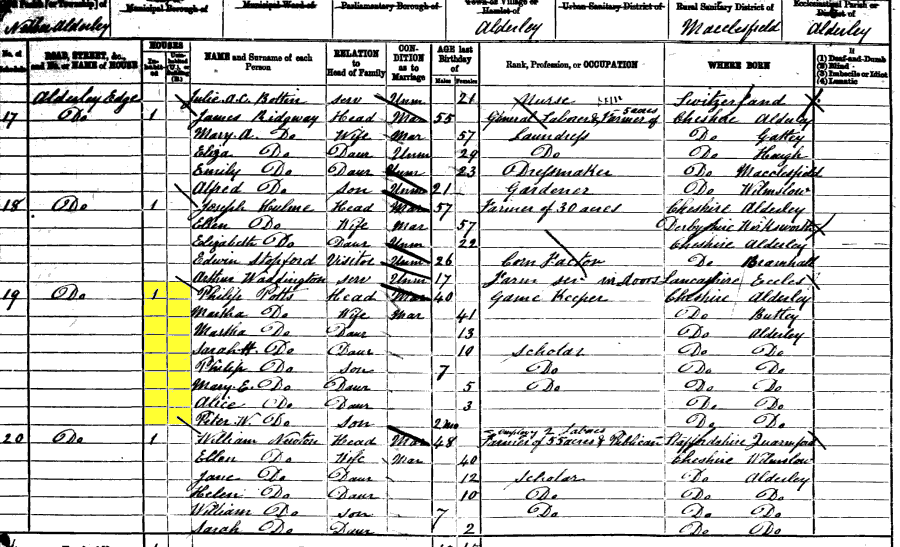 Parish [or Township] of
Municipal Borough of
Municipal Ward of
Parliamentary Borough of
Town or Village or Hamlet of
Urban Sanitary District of
Rural Sanitary District of
Ecclesiastical Parish or District of
Nether Alderley Alderley Macclesfield Alderley
No. of Schedule
ROAD, STREET, &c., and No. or NAME of HOUSE
HOUSES
Inhabited
Uninhabited (U.), or Building (B.)
NAME and Surname of each Person
RELATION to Head of Family
CONDITION as to Marriage
AGE last Birthday of
Males Females
Rank, Profession, or OCCUPATION
WHERE BORN
If
(1) Deaf-and-Dumb
(2) Blind
(3) Imbecile or Idiot
(4) Lunatic
Alderley Edge Julie A.C. serv Unm 21 Nurse Switzerland
17 Do 1 James Ridgway Head Mar 55 General Labourer & Farmer of 5 acres Cheshire Alderley
Mary A. Do Wife Mar 57 Laundress Do
Eliza Do Daur Unm 29 Do Do Hough
Emily Do Daur Unm 23 Dressmaker Do Macclesfield
Alfred Do son Unm 21 Gardener Do Wilmslow
18 Do 1 Joseph Hulme Head Mar 57 Farmer of 30 acres Cheshire Alderley
Ellen Do Wife Mar 57 Derbyshire Wirksworth
Elizabeth Do Daur Unm 22 Cheshire Alderley
Edwin Stopford Visitor Unm 26 Corn Factor Do Bramhall
Arthur Waddington serv Unm 17 Farm ser indoors Lancashire Eccles
19 Do 1 Philip Potts Head Mar 40 Game Keeper Cheshire Alderley
Martha Do Wife Mar 41 Do
Martha Do Daur 13 Do Alderley
Sarah H. Do Daur 10 Scholar Do Do
Philip Do son 7 Do Do Do
Mary E. Do Daur 5 Do Do Do
Alice Do Daur 3 Do Do
Peter W. Do son 2 mo Do Do
20 Do 1 William Newton Head Mar 48 Farmer of 55 acres & Publican employ 2 Labrers Staffordshire Quarnford
Ellen Do Wife Mar 40 Cheshire Wilmslow
Jane Do Daur 12 Scholar Do Alderley
Helen Do Daur 10 Do Do Do
William Do son 7 Do Do Do
Sarah Do Daur 2 Do Do